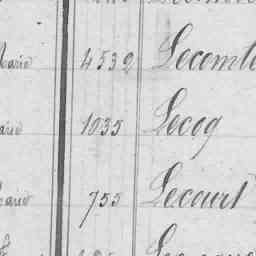 Marie 4532 Lecomte
Marie 1035 Lecoq
Marie 755 Lecourt